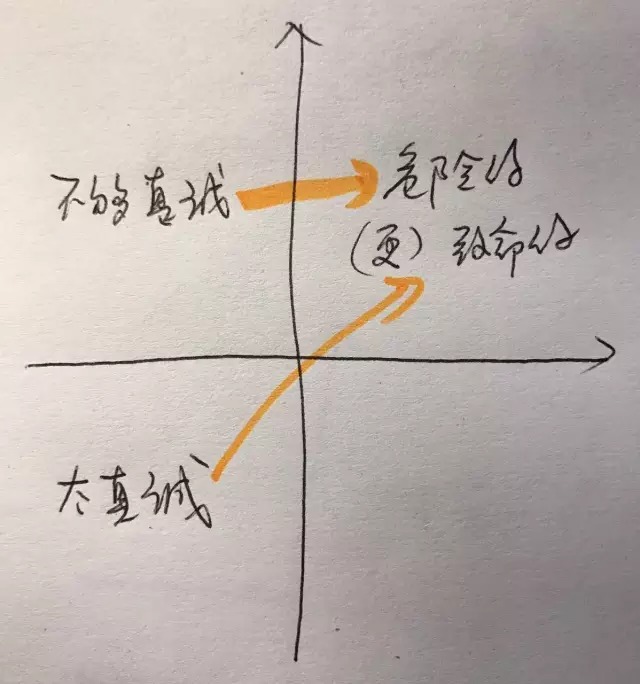 不够真诚
危险的
(更)致命的
太真诚